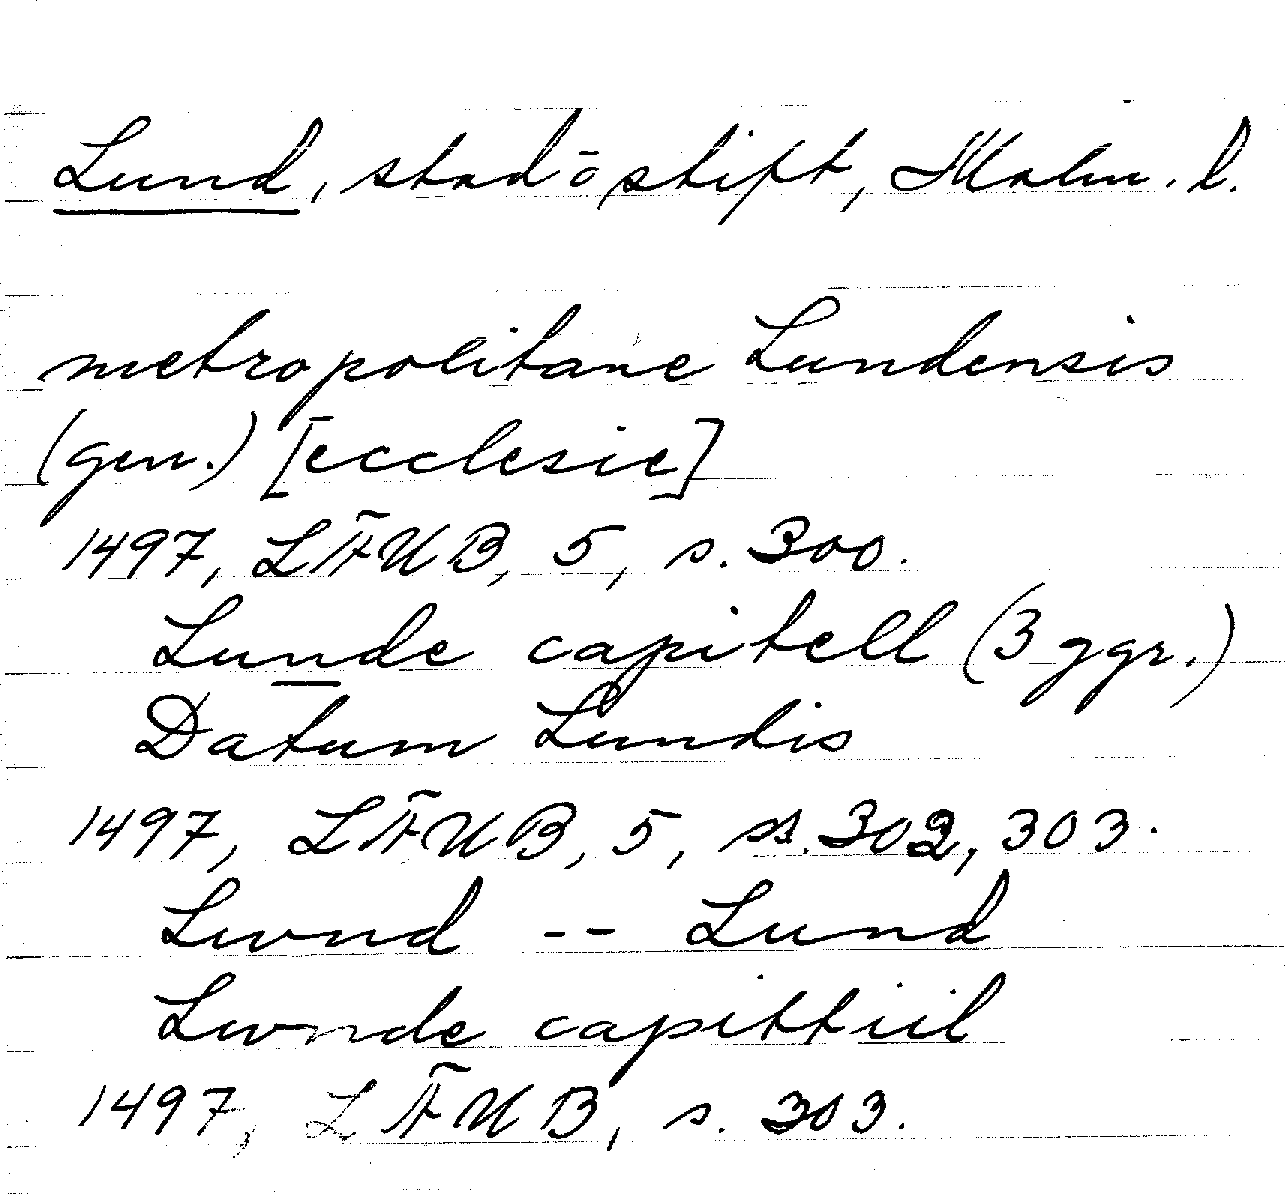 Lund, stad o stift, Malm. l.
metropolitane Lundensis
(gen.) [ecclesie]
1497, LÄUB, 5, s. 300.
Lunde capitell (3 ggr.)
Datum Lundis
1497, LÄUB, 5, ss. 302, 303.
Lwnd -- Lund
Lwnde capittiil
1497, LÄUB, s. 303.